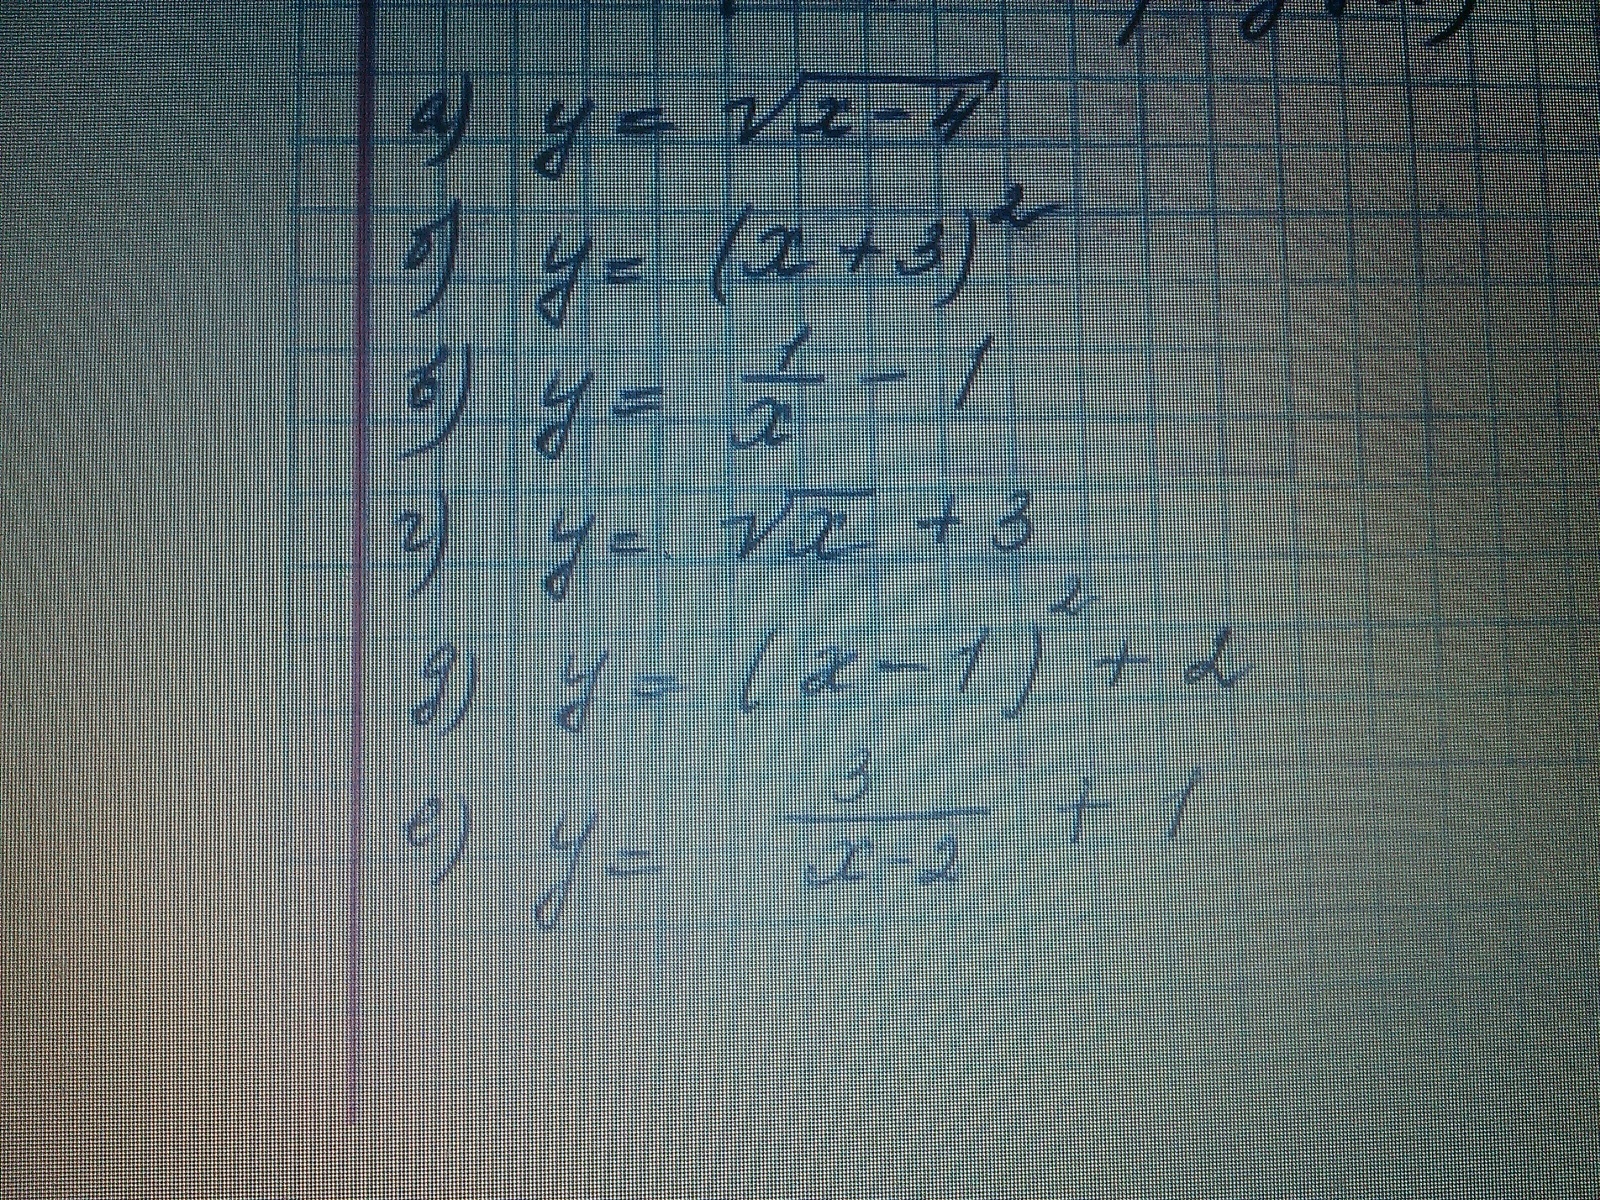 а) y = √x-4
б) y = (x+3)²
в) y = 1/x - 1
г) y = √x + 3
д) y = (x-1)² + 2
е) y = 3/(x-2) + 1